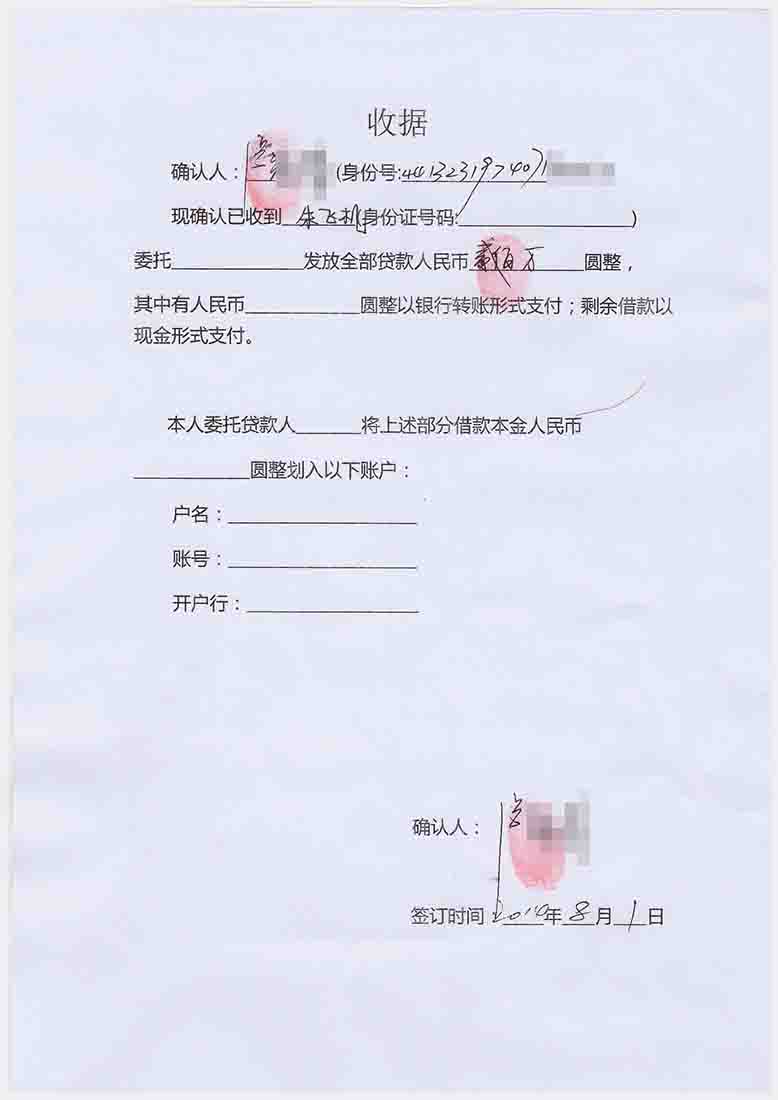 收据
确认人：(身份号:4413231974071
现确认已收到 朱飞机(身份证号码:____________)
委托____________发放全部贷款人民币 贰佰万 圆整，
其中有人民币____________圆整以银行转账形式支付；剩余借款以
现金形式支付。
本人委托贷款人______将上述部分借款本金人民币
____________圆整划入以下账户：
户名：____________
账号：____________
开户行：____________
确认人：
签订时间 2014年8月1日